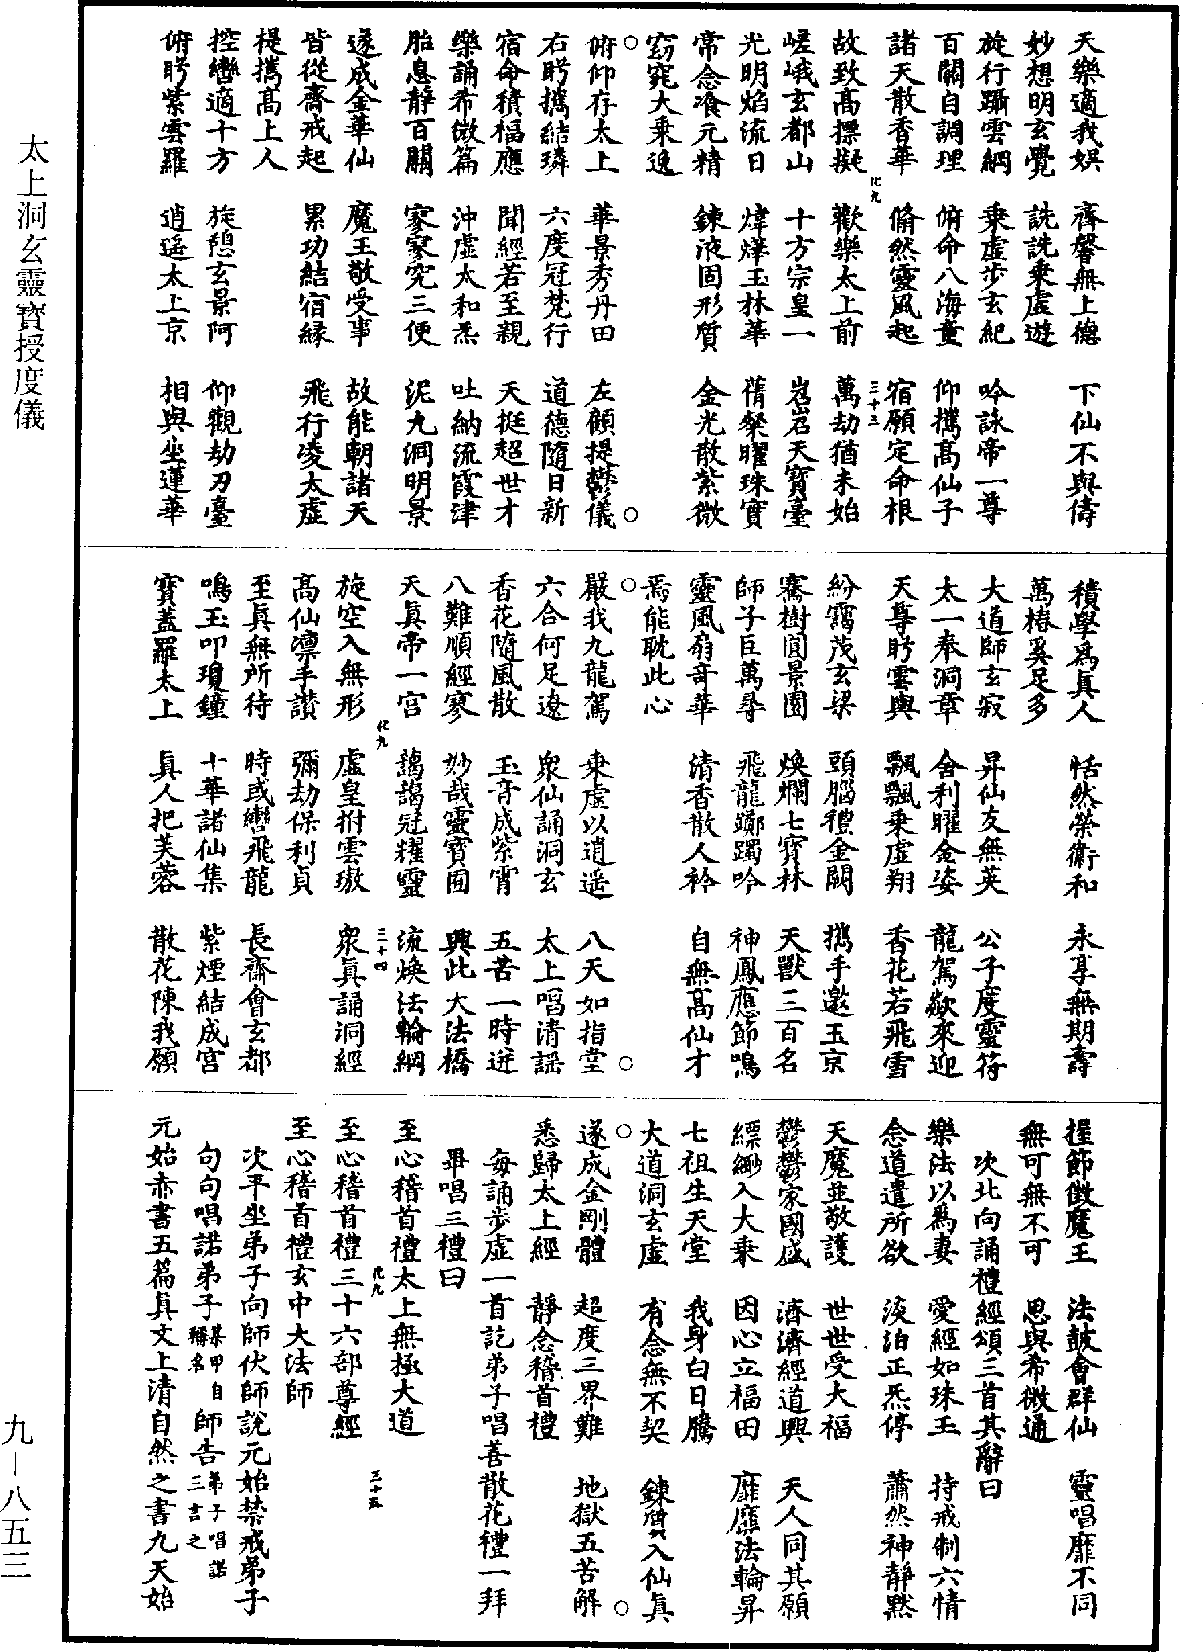 太上洞玄靈寶授度儀
天樂適我娛 齊馨無上德 下仙不與儔
妙想明玄覺 詵詵乘虛遊
旋行躡雲綱 乘虛步玄紀 吟詠帝一尊
百關自調理 俯命八海童 仰攜高仙子
諸天散香華 翛然靈風起 宿願定命根
故致高標擬 歡樂太上前 萬劫猶未始
化九 三十三
嵯峨玄都山 十方宗皇一 岧岧天寶臺
光明焰流日 煒燁玉林華 蒨粲曜珠實
常念飡元精 鍊液固形質 金光散紫微
窈窕大乘逸
○俯仰存太上 華景秀丹田 左顧提鬱儀○
右眄攜結璘 六度冠梵行 道德隨日新
宿命積福應 聞經若至親 天挺超世才
樂誦希微篇 沖虛太和炁 吐納流霞津
胎息靜百關 寥寥究三便 泥丸洞明景
遂成金華仙 魔王敬受事 故能朝諸天
皆從齋戒起 累功結宿緣 飛行凌太虛
提攜高上人
控轡適十方 旋憩玄景阿 仰觀劫刃臺
俯眄紫雲羅 逍遙太上京 相與坐蓮華
積學為真人 恬然榮衛和 永享無期壽
萬椿奚足多
大道師玄寂 昇仙友無英 公子度靈符
太一奉洞章 舍利曜金姿 龍駕欻來迎
天尊眄雲輿 飄飄乘虛翔 香花若飛雪
紛靄茂玄梁 頭腦禮金闕 攜手邀玉京
騫樹圓景園 煥爛七寶林 天獸三百名
師子巨萬尋 飛龍躑躅吟 神鳳應節鳴
靈風扇奇華 清香散人衿 自無高仙才
焉能耽此心
○嚴我九龍駕 乘虛以逍遙 八天如指堂○
六合何足遼 眾仙誦洞玄 太上唱清謠
香花隨風散 玉音成紫霄 五苦一時迸
八難順經寥 妙哉靈寶囿 興此大法橋
天真帝一宮 藹藹冠耀靈 流煥法輪綱
化九 三十四
旋空入無形 虛皇拊雲璈 眾真誦洞經
高仙凛手讚 彌劫保利貞
至真無所待 時或轡飛龍 長齋會玄都
鳴玉叩瓊鐘 十華諸仙集 紫煙結成宮
寶蓋羅太上 真人把芙蓉 散花陳我願
握節徵魔王 法鼓會群仙 靈唱靡不同
無可無不可 思與希微通
次北向誦禮經頌三首其辭曰
樂法以為妻 愛經如珠玉 持戒制六情
念道遣所欲 淡泊正炁停 蕭然神靜默
天魔並敬護 世世受大福
鬱鬱家國盛 濟濟經道興 天人同其願
縹緲入大乘 因心立福田 靡靡法輪昇
七祖生天堂 我身白日騰
大道洞玄虛 有念無不契 鍊質入仙真
○遂成金剛體 超度三界難 地獄五苦解○
悉歸太上經 靜念稽首禮
每誦步虛一首訖弟子唱善散花禮一拜
畢唱三禮曰
至心稽首禮太上無極大道
化九 三十五
至心稽首禮三十六部尊經
至心稽首禮玄中大法師
次平坐弟子向師伏師說元始禁戒弟子
句句唱諾弟子某甲自稱名師告弟子唱諾三言之
元始赤書五篇真文上清自然之書九天始
九—八五三